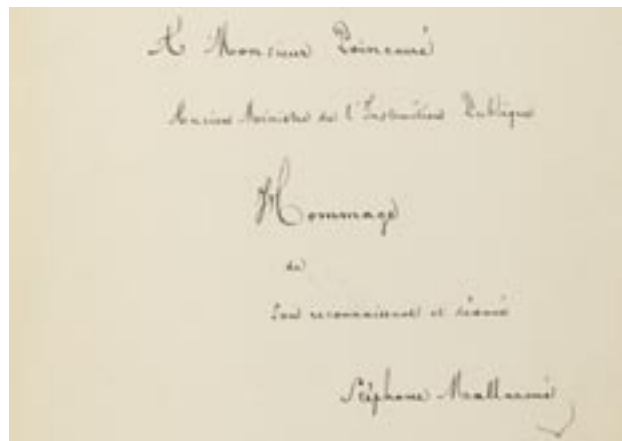 A Monsieur Poincaré
Ancien Ministre de l'Instruction Publique
Hommage
de
Son reconnaissant et dévoué
Stéphane Mallarmé